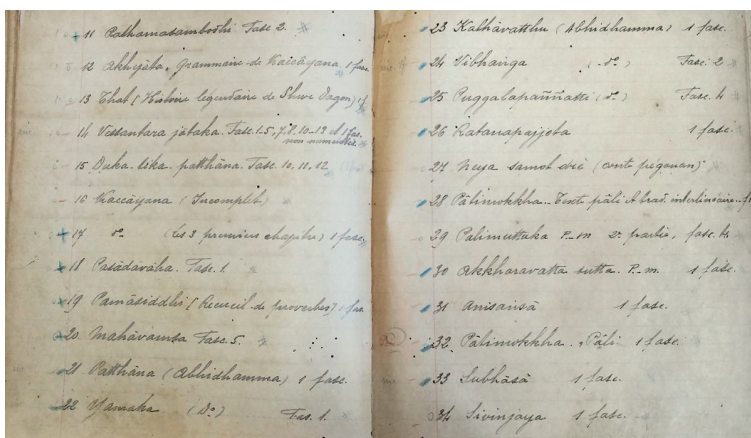 11 Pathamasambodhi Fasc 2.
12 Akhyâta, Grammaire de Kaccâyana, 1 fasc.
13 That (Histoire légendaire de Shwe Dagon) 1 f.
14 Vessantara jâtaka. Fasc. 1.5, 7, 8, 10-12 et 1 fas.
non numérotés.
15 Duka-tika-patthâna. Fasc. 10, 11, 12
16 Kaccâyana (Incomplet)
17 do (les 3 premiers chapitres) 1 fasc.
18 Pasâdâvaha. Fasc. 1.
19 (Recueil de proverbes) 1 fas.
20 Mahâvamsa Fasc. 5.
21 Patthâna (Abhidhamma) 1 fasc.
22 Yamaka (Do) Fas. 1.
23 Kathâvatthu (Abhidhamma) 1 fasc.
24 Vibhanga (do) Fasc. 2
25 Puggalapaññatti (do) Fasc. 4
26 Ratanapajjota 1 fasc.
27 samot (conte pégouan)
28 Pâtimokkha. Texte pâli & trad. interlinéaire
29 Pâlimuttaka P.-m. 2e partie, fasc. 4
30 Akkharavatta sutta. P.-m. 1 fasc.
31 Anisansâ 1 fasc.
32 Pâtimokkha. Pâli 1 fasc.
33 Subhâsâ 1 fasc.
34 Sivinjaya 1 fasc.